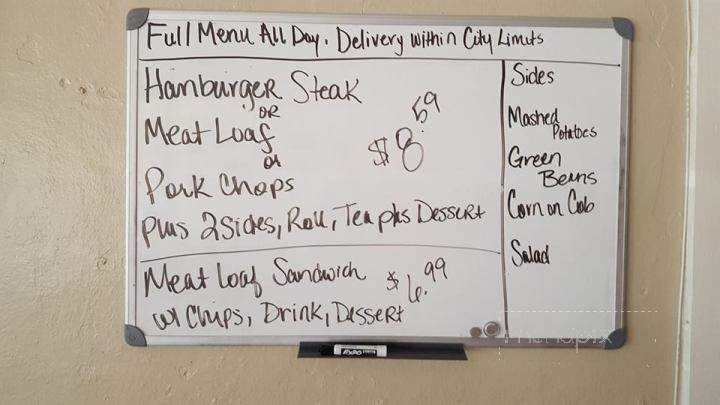 Full Menu All Day. Delivery Within City Limits
Hamburger Steak
OR
Meat Loaf
or
Pork Chops
$8.59
Plus 2 Sides, Roll, Tea plus Dessert
Meat Loaf Sandwich $6.99
w/ Chips, Drink, Dessert
Sides
Mashed
Potatoes
Green
Beans
Corn on Cob
Salad
EXPO
menupix